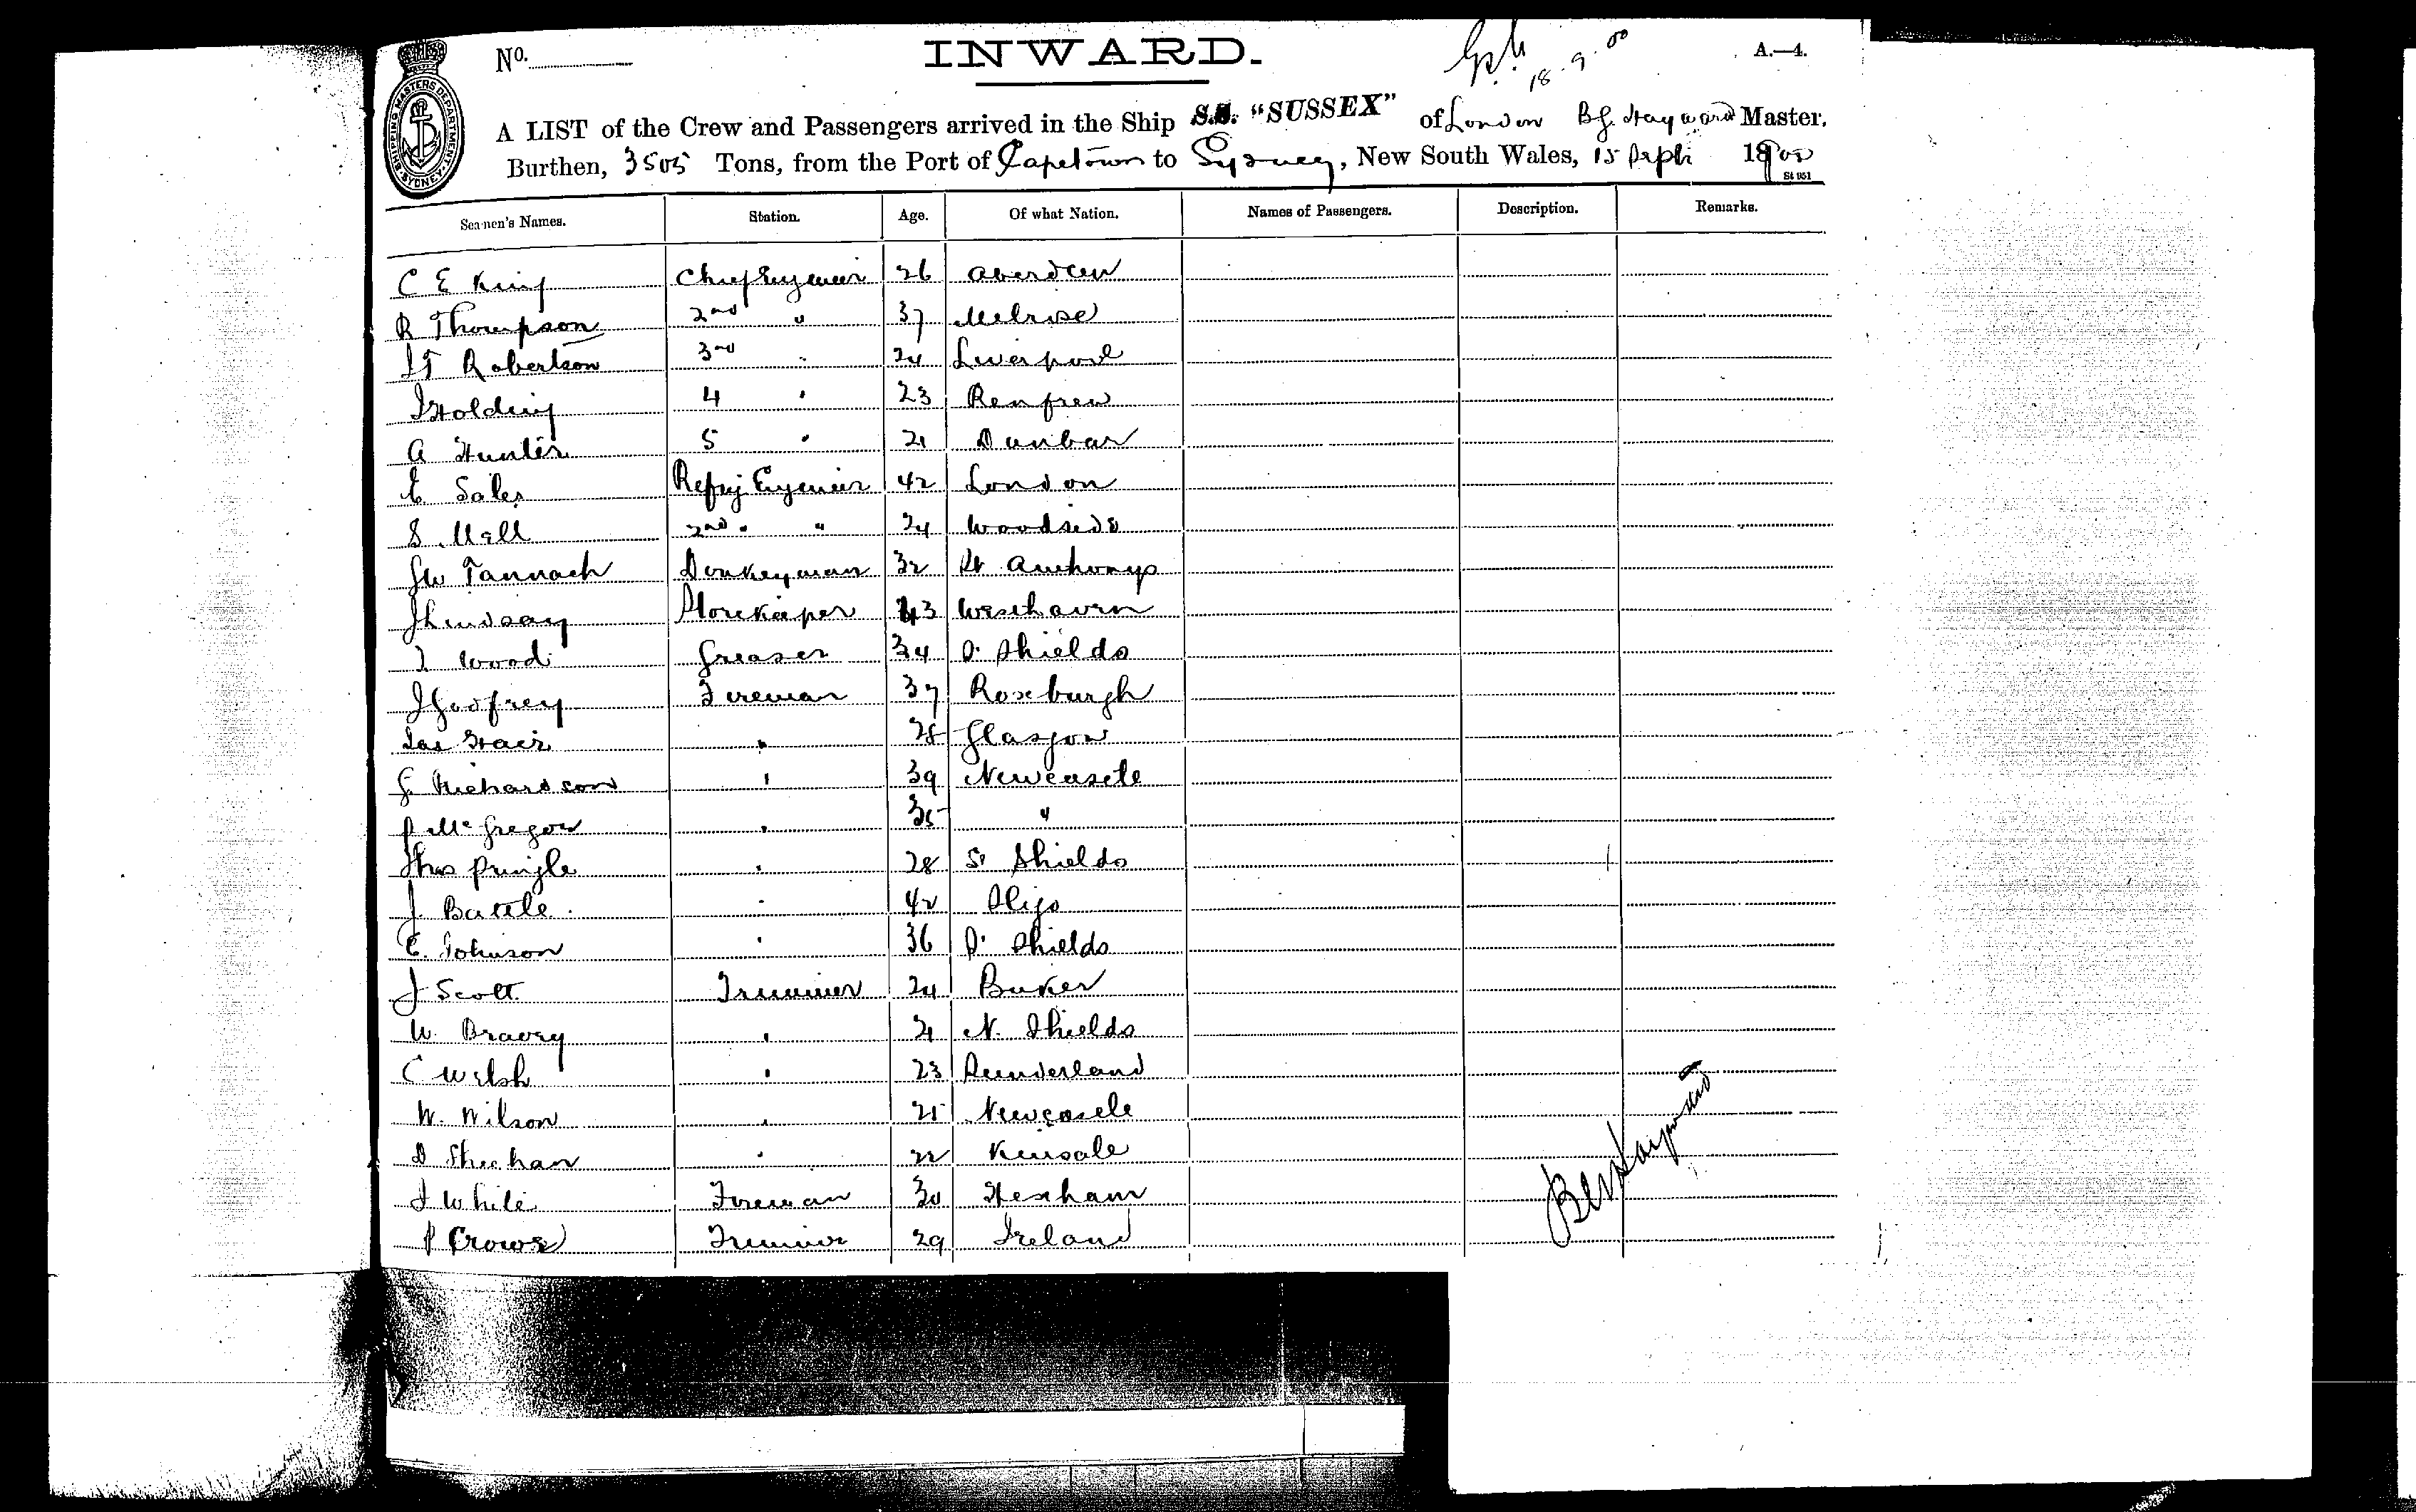 No.
INWARD.
18.9.00
A.—4.
SHIPPING MASTERS DEPARTMENT SYDNEY
A LIST of the Crew and Passengers arrived in the Ship S.S. "SUSSEX" of London B.J. Hayward Master,
Burthen, 3505 Tons, from the Port of Capetown to Sydney, New South Wales, 15 Sept 1900
St 951
Seamen's Names. Station. Age. Of what Nation. Names of Passengers. Description. Remarks.
C E King Chief Engineer 26 Aberdeen
R Thompson 2nd " 37 Melrose
Robertson 3rd " 24 Liverpool
J Holding 4 " 23 Renfrew
A Hunter 5 " 21 Dunbar
E Sales Refrig Engineer 42 London
S Mell 2nd " " 24 Woodside
Tannach Donkeyman 32 St
J Lindsay Storekeeper 43 Westhaven
Wood Greaser 34 S. Shields
J Godfrey Fireman 37 Roxburgh
Jas Hair " 28 Glasgow
G Richardson " 39 Newcastle
P McGregor " 35 "
Thos Pringle " 28 S. Shields
J. Battle " 42 Sligo
C. Johnson " 36 S. Shields
J Scott Trimmer 24
W. Bravey " 21 N. Shields
C Welsh " 23 Sunderland
W. Wilson " 25 Newcastle
D Sheehan " 22 Kinsale
J White Fireman 30 Hexham
P Crowe Trimmer 29 Ireland
Hayward